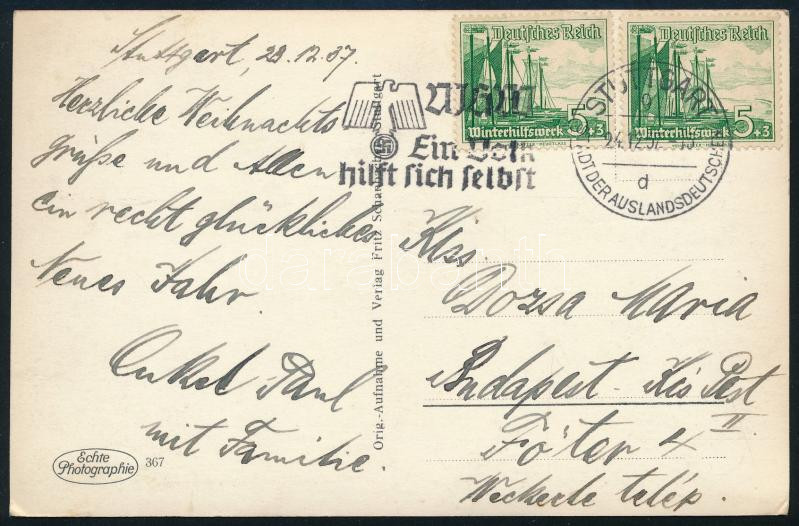 Stuttgart, 23.12.37.
Herzliche Weihnachts
grüße und Allen
ein recht glückliches
Neues Jahr.
Onkel Paul
mit Familie.
Echte
Photographie
367
Orig.-Aufnahme und Verlag Fritz Stuttgart
WHW
Ein Volk
hilft sich selbst
Deutsches Reich
5+3
Winterhilfswerk
Deutsches Reich
5+3
Winterhilfswerk
STUTTGART
24.12.37
d
STADT DER AUSLANDSDEUTSCHEN
darabanth
Kiss.
Dozsa Maria
Budapest - Kis Pest
II
Főtér 4
Wekerle telép.